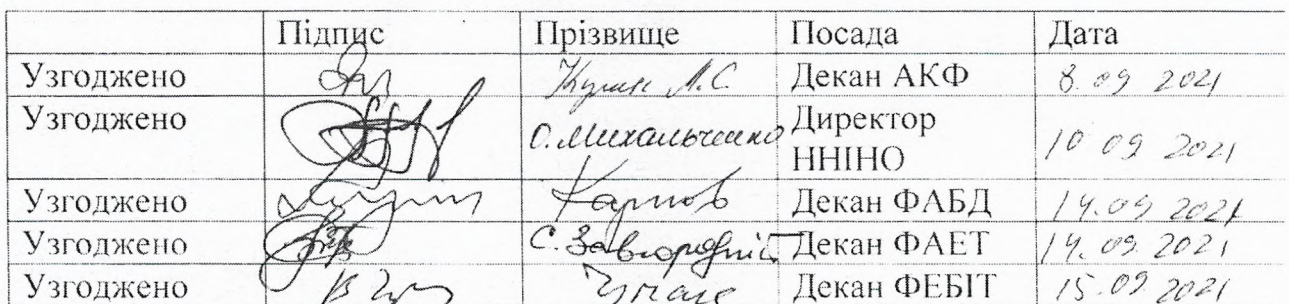 Підпис Прізвище Посада Дата
Узгоджено Декан АКФ 8.09 2021
Узгоджено О. Михальченко Директор ННІНО 10 09 2021
Узгоджено Карпов Декан ФАБД 14.09 2021
Узгоджено С. Завгородній Декан ФАЕТ 14.09.2021
Узгоджено Декан ФЕБІТ 15.09 2021